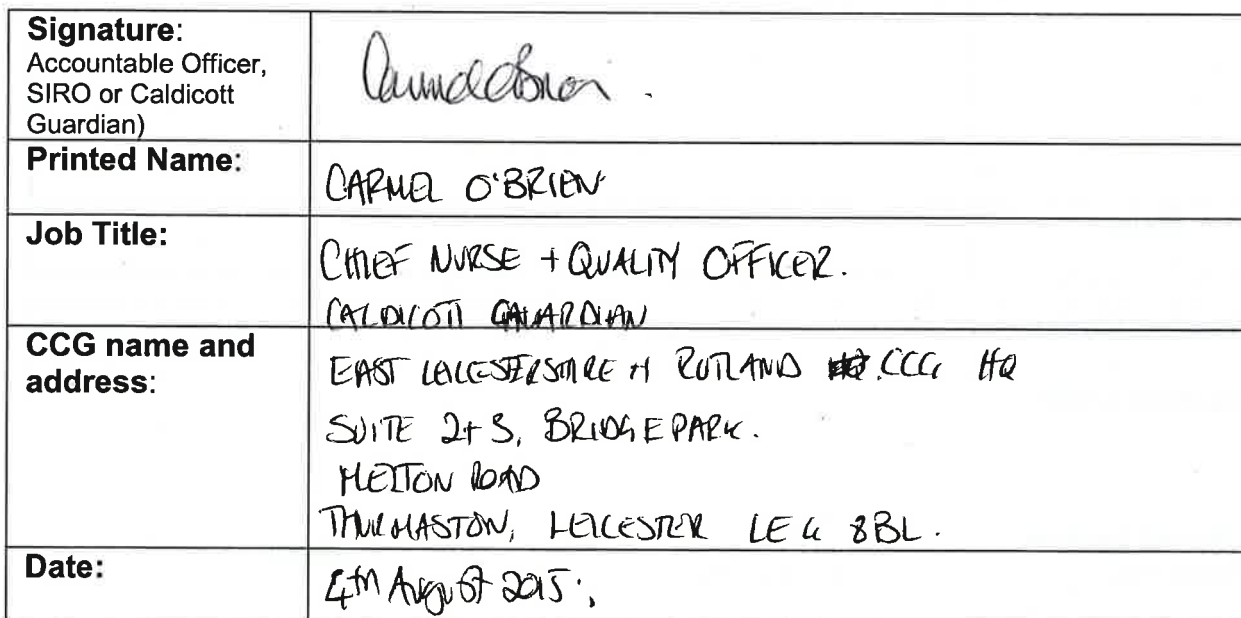 Signature:
Accountable Officer,
SIRO or Caldicott
Guardian)
Carmel O'Brien.
Printed Name:
CARMEL O'BRIEN
Job Title:
CHIEF NURSE + QUALITY OFFICER.
CALDICOTT GUARDIAN
CCG name and
address:
EAST LEICESTERSHIRE + RUTLAND CCG HQ
SUITE 2+3, BRIDGE PARK.
MELTON ROAD
THURMASTON, LEICESTER LE4 8BL.
Date:
4th August 2015.